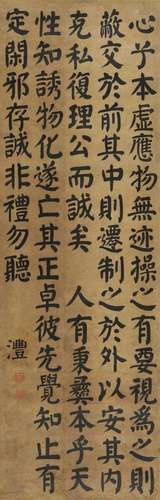 心兮本虛應物無迹操之有要視為之則
蔽交於前其中則遷制之於外以安其內
克私復理公而誠矣 人有秉彝本乎天
性知誘物化遂亡其正卓彼先覺知止有
定閑邪存誠非禮勿聽
灃